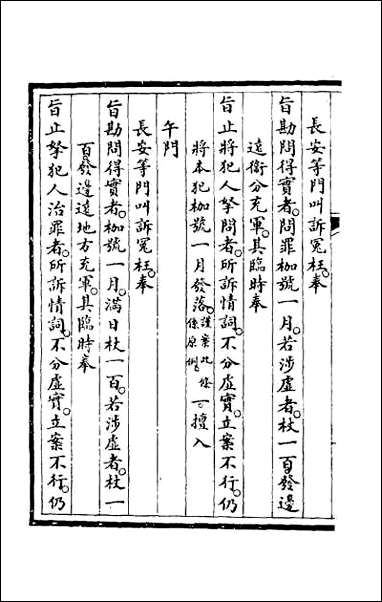 長安等門叫訴冤枉。奉
旨勘問得實者。問罪枷號一月。若涉虛者。杖一百發邊
遠衛分充軍。其臨時奉
旨止將犯人拏問者。所訴情詞。不分虛實。立案不行。仍
將本犯枷號一月發落。謹案此條係原例。一擅入
午門
長安等門叫訴冤枉。奉
旨勘問得實者。枷號一月。滿日杖一百。若涉虛者。杖一
百發邊遠地方充軍。其臨時奉
旨止拏犯人治罪者。所訴情詞。不分虛實。立案不行。仍